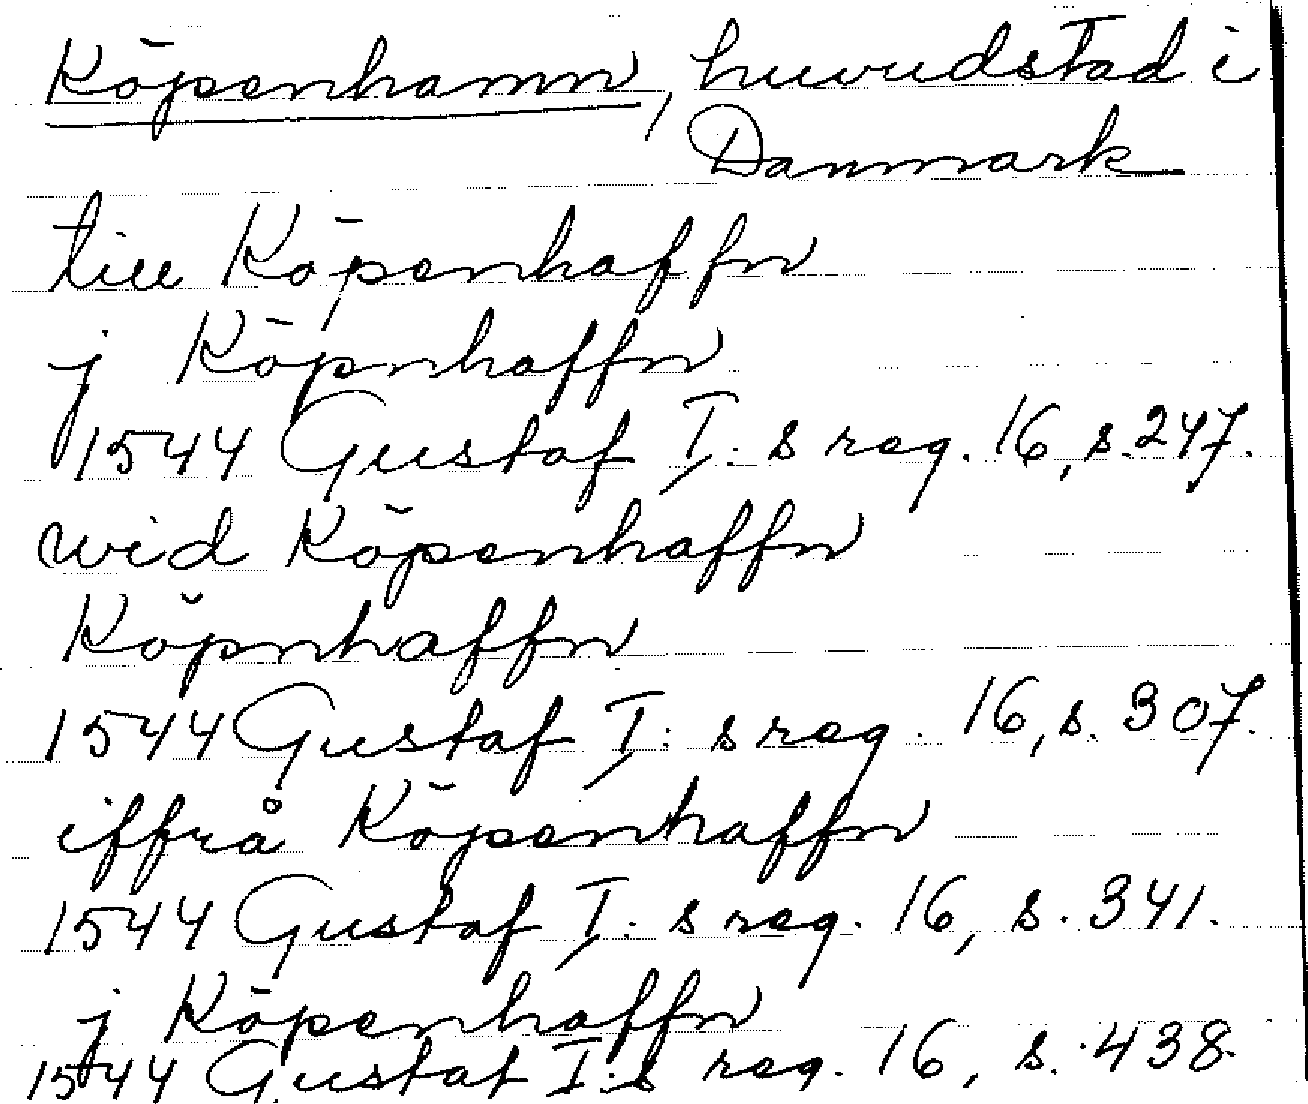 Köpenhamn, huvudstad i
Danmark
till Köpenhaffn
j Köpnhaffn
1544 Gustaf I:s reg. 16, s. 247.
wid Köpenhaffn
Köpnhaffn
1544 Gustaf I:s reg. 16, s. 307.
iffrå Köpenhaffn
1544 Gustaf I:s reg. 16, s. 341.
j Köpenhaffn
1544 Gustaf I:s reg. 16, s. 438.